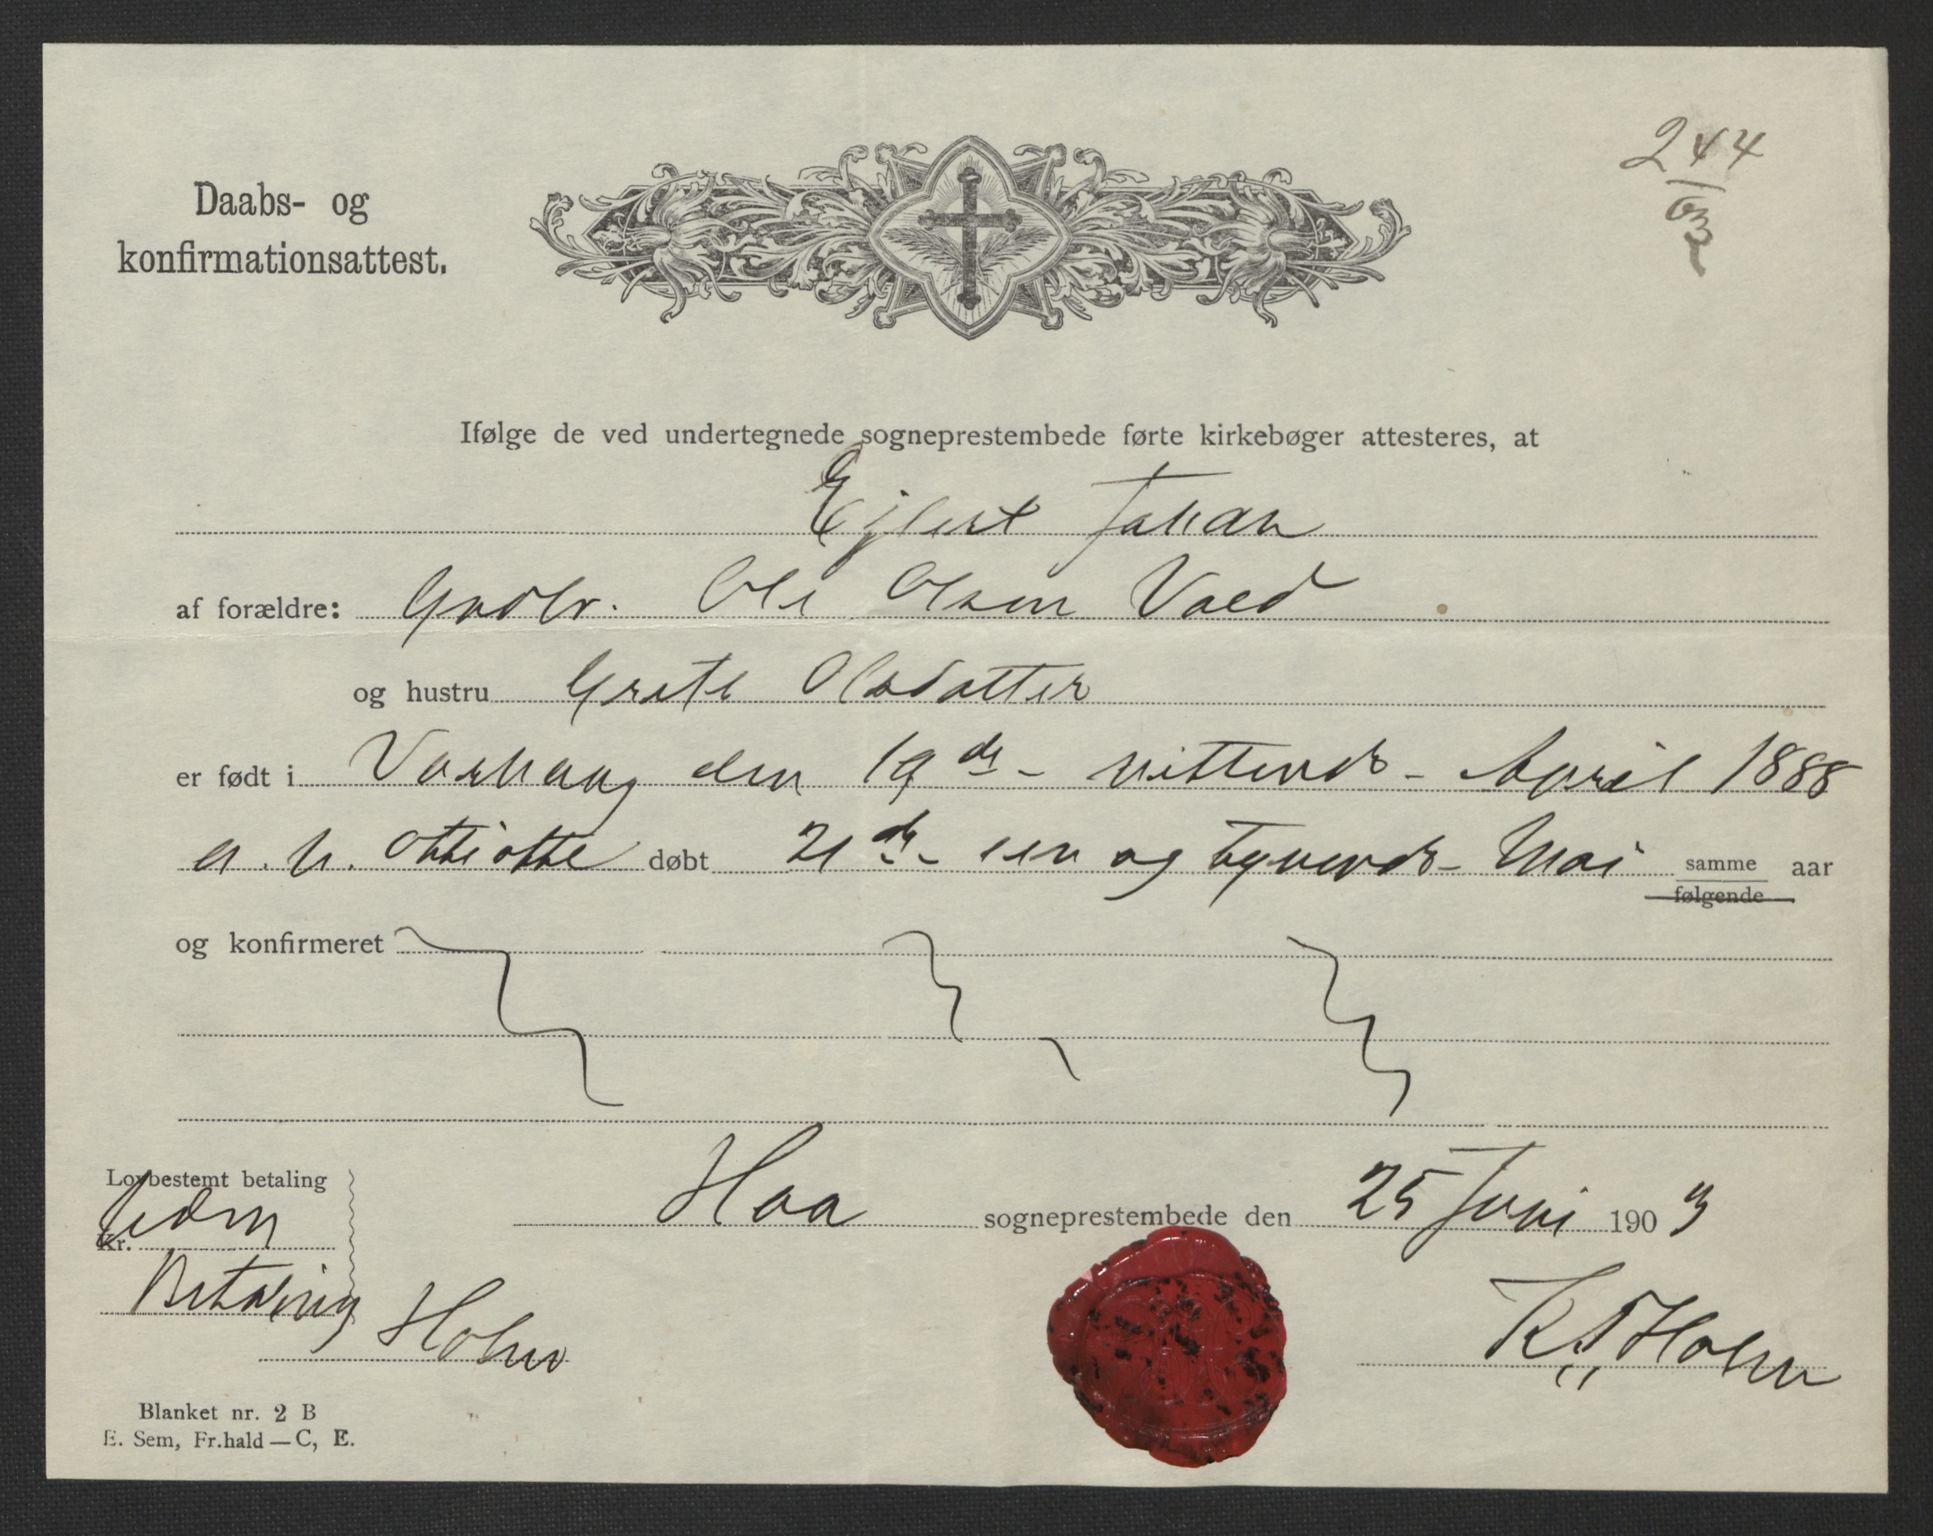 244
/03
Daabs- og
konfirmationsattest.
Ifølge de ved undertegnede sogneprestembede førte kirkebøger attesteres, at
Ejlert Johan
af forældre: Grdbr. Ole Olsen Valed
og hustru Grete Olsdatter
er født i Varhaug den 19de - nittende - April 1888
a. h. ottiotte døbt 21de - een og tyvende - Mai samme aar
følgende
og konfirmeret
Lovbestemt betaling
Haa sogneprestembede den 25 Juni 1903
Kr. Uden
Betaling
Holm
K. Holm
Blanket nr. 2 B
E. Sem, Fr.hald — C, E.